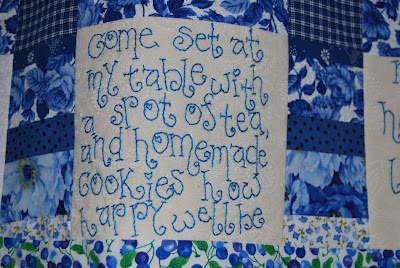 come set at
my table with
a spot of tea,
and homemade
cookies how
happy we'll be